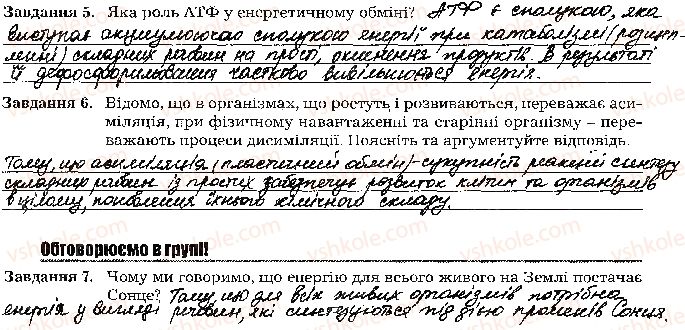 Завдання 5. Яка роль АТФ у енергетичному обміні? АТФ є сполукою, яка
виступає акумулюючою сполукою енергії при катаболізмі (розщеп-
ленні) складних речовин на прості, окиснення продуктів. В результаті
її дефосфорилювання частково вивільняється енергія.
Завдання 6. Відомо, що в організмах, що ростуть і розвиваються, переважає аси-
міляція, при фізичному навантаженні та старінні організму – пере-
важають процеси дисиміляції. Поясніть та аргументуйте відповідь.
Тому, що асиміляція (пластичний обмін) - сукупність реакцій синтезу
складних речовин із простих забезпечує розвиток клітин та організмів
в цілому, поновлення їхнього хімічного складу.
Обговорюємо в групі!
Завдання 7. Чому ми говоримо, що енергію для всього живого на Землі постачає
Сонце? Тому, що для всіх живих організмів потрібна
енергія у вигляді речовин, які синтезуються під дією променів Сонця.
vshkole.com